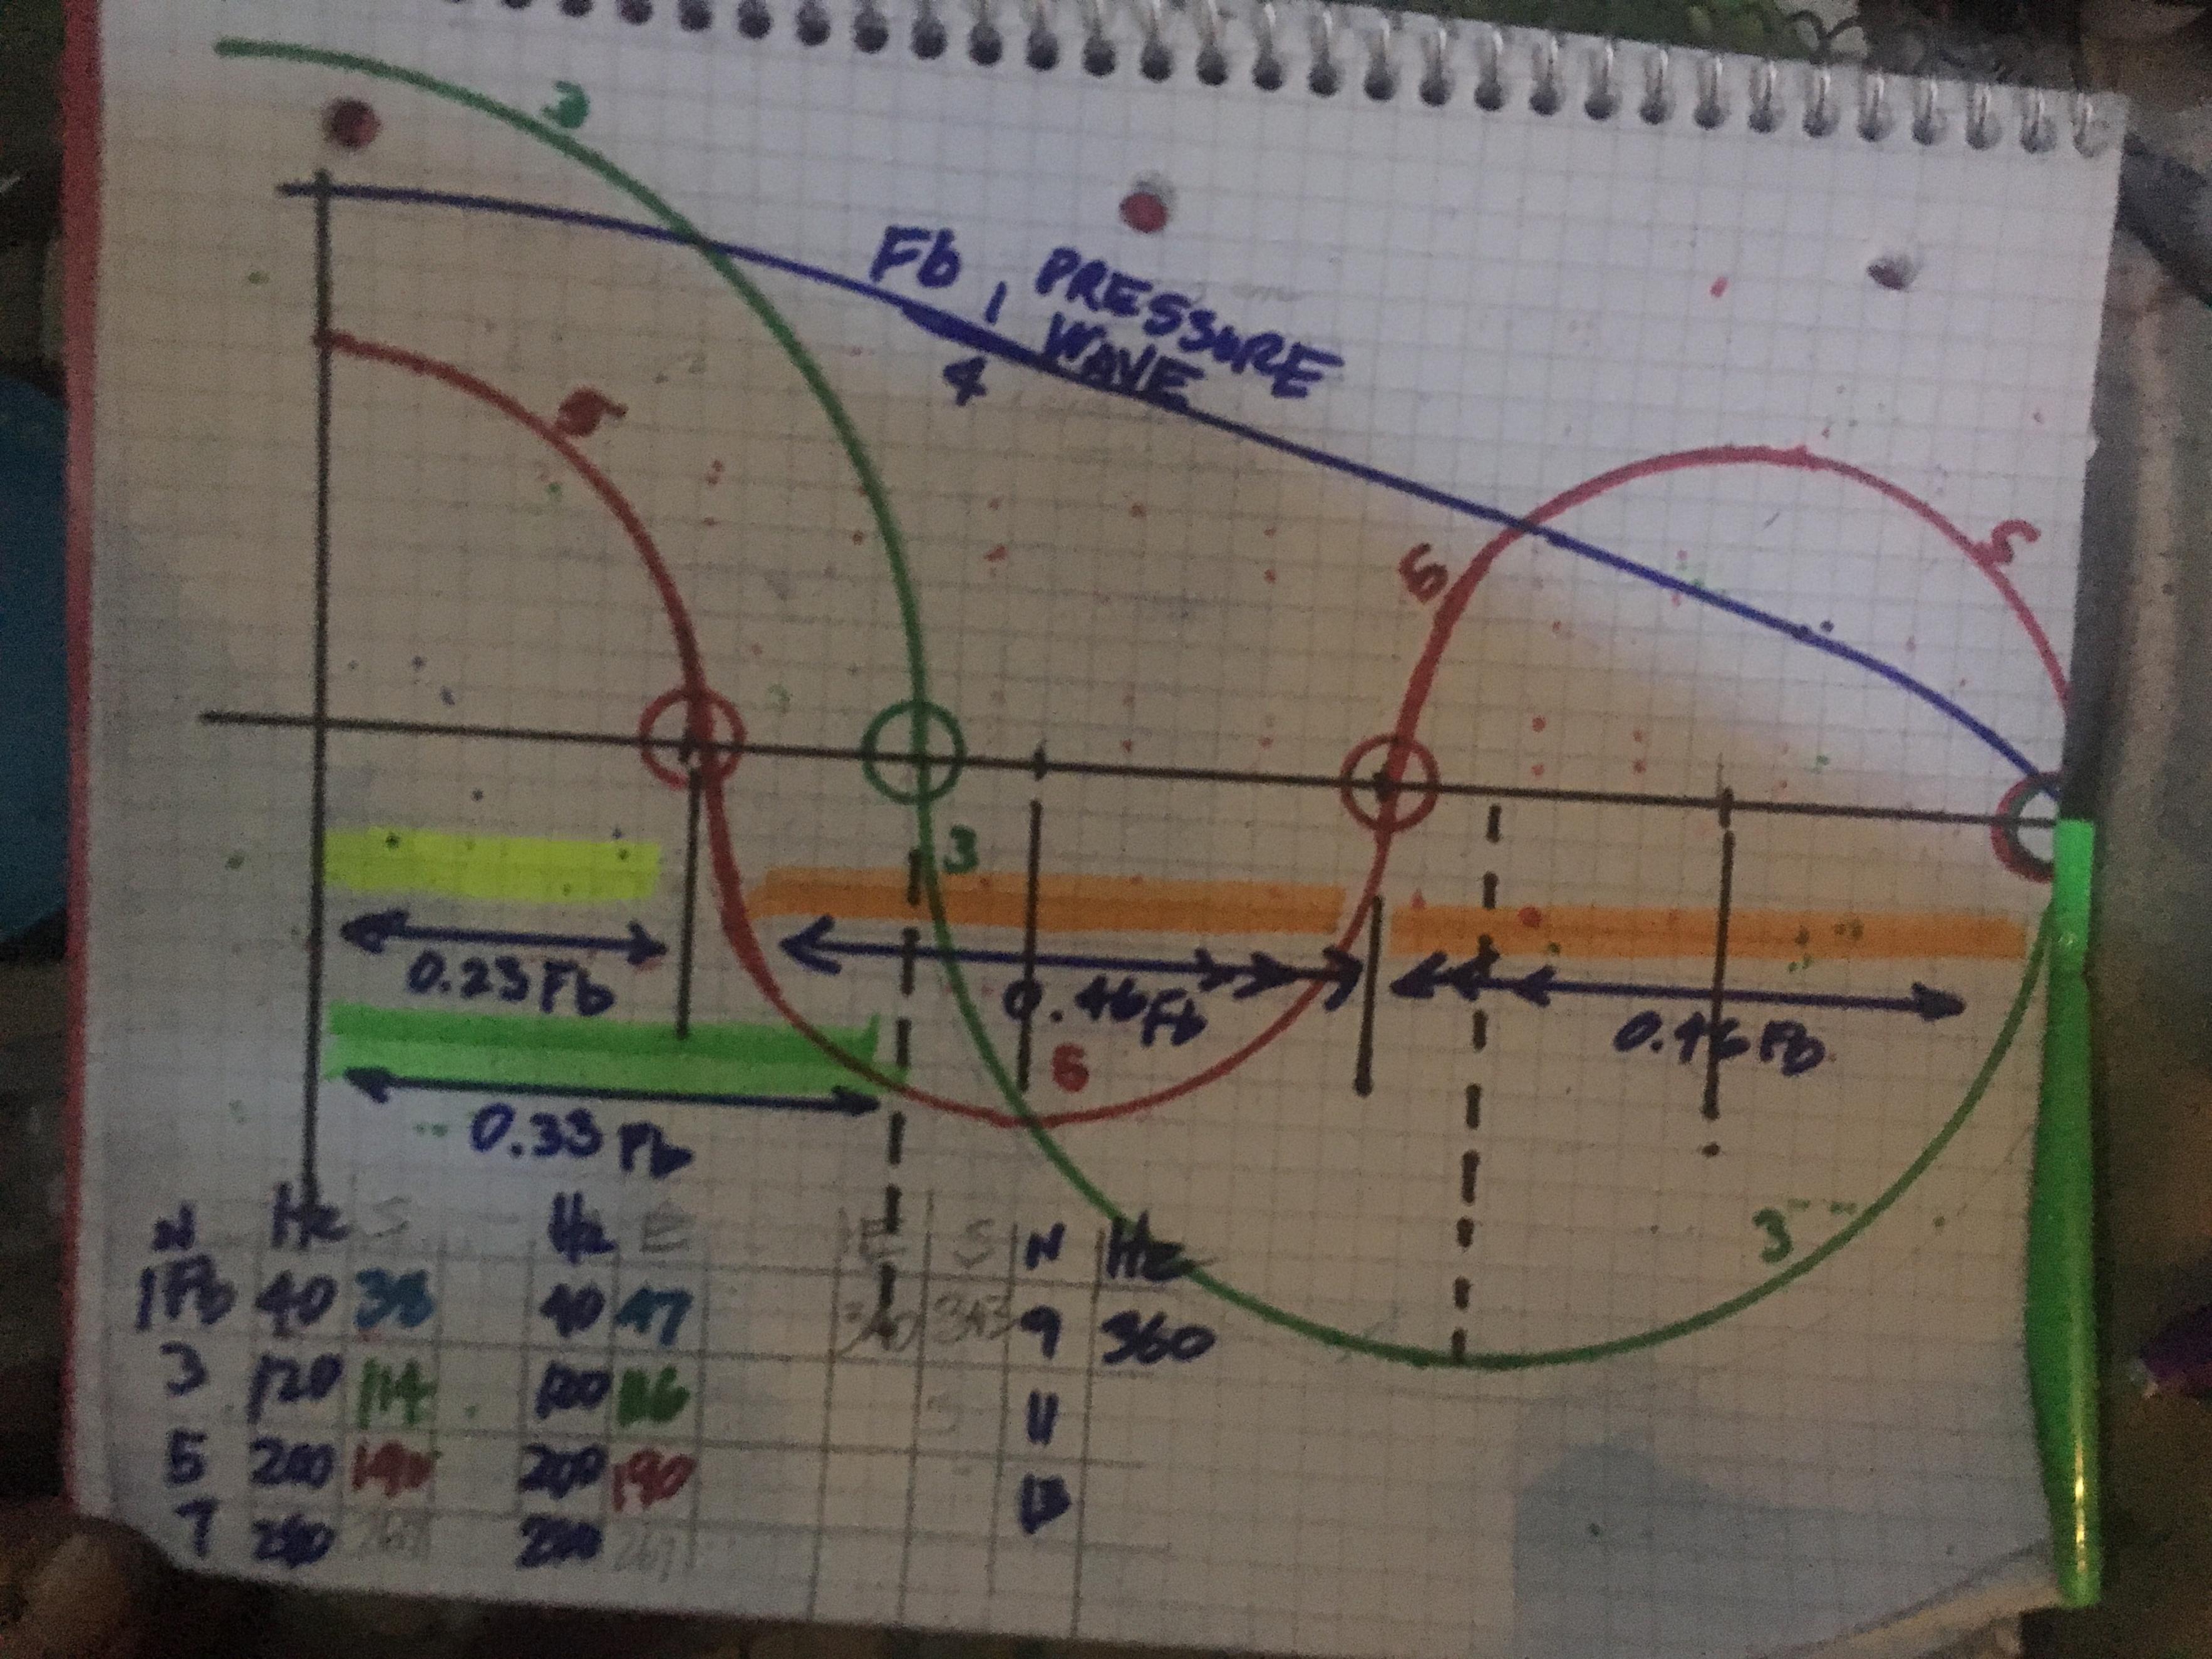 3
Fb, PRESSURE
WAVE
4
5
5
5
3
0.23 Fb
0.46 Fb
0.46 Fb
5
0.33 Fb
3
N Hz S Hz E E S N Hz
1Fb 40 38 40 47 343 9 360
3 120 114 120 116 11
5 200 190 200 190 13
7 280 280